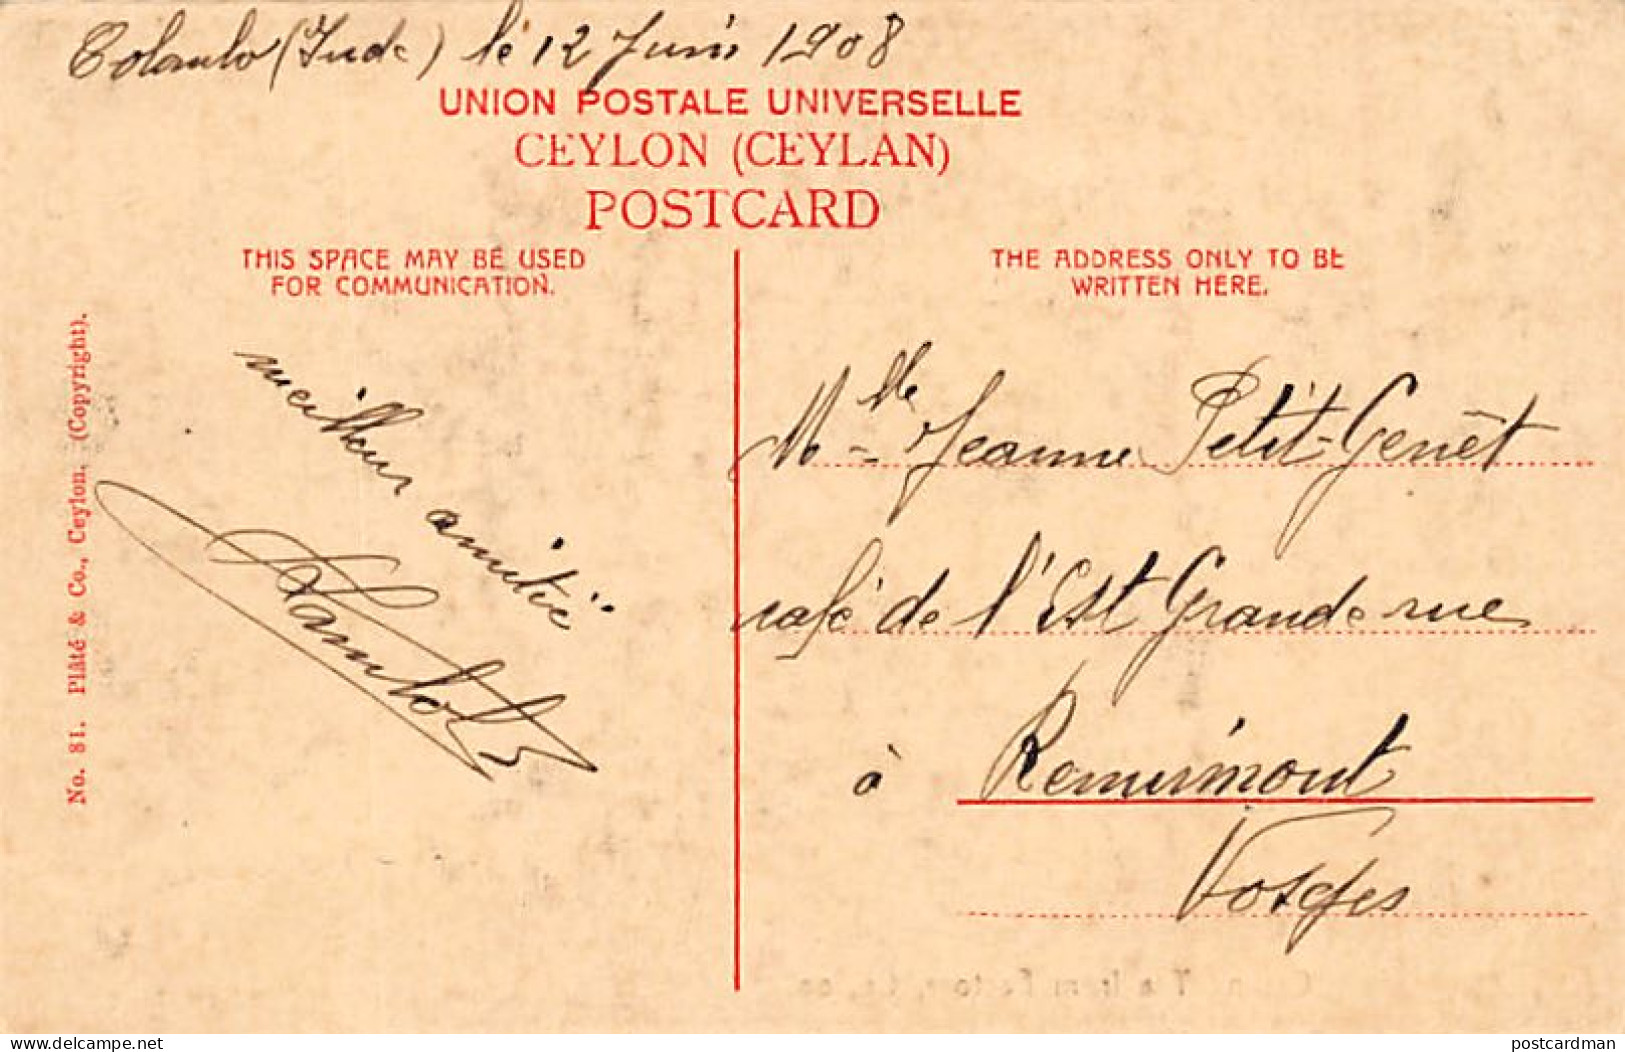 Colombo (Inde) le 12 Juin 1908
UNION POSTALE UNIVERSELLE
CEYLON (CEYLAN)
POSTCARD
THIS SPACE MAY BE USED
FOR COMMUNICATION.
THE ADDRESS ONLY TO BE
WRITTEN HERE.
No. 81. Plâté & Co., Ceylon. (Copyright).
meilleur amitié
Mlle Jeanne Petit-Genêt
café de l'Est Grande rue
à Remiremont
Vosges
delcampe.net
postcardman